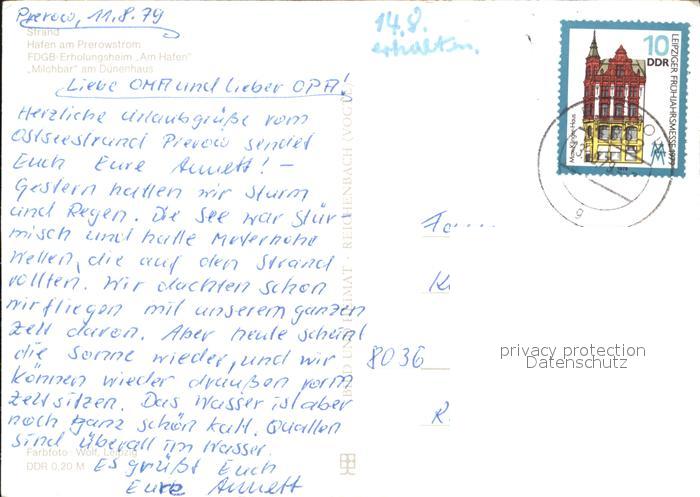 Prerow, 11.8.79
Strand
Hafen am Prerowstrom
FDGB-Erholungsheim „Am Hafen"
„Milchbar" am Dünenhaus
14.8.
erhalten.
10
DDR
LEIPZIGER FRÜHJAHRSMESSE 1979
Liebe OMA und lieber OPA!
Herzliche Urlaubsgrüße vom
Ostseestrand Prerow sendet
Euch Eure Annett! –
Gestern hatten wir Sturm
und Regen. Die See war stür
misch und hatte Meterhohe
Wellen, die auf den Strand
rollten. Wir dachten schon
wir fliegen mit unserem ganzen
Zelt davon. Aber heute scheint
die Sonne wieder, und wir
können wieder draußen vorm
Zelt sitzen. Das Wasser ist aber
noch ganz schön kalt. Quallen
sind überall im Wasser.
Es grüßt Euch
Eure Annett
Farbfoto: Wolf, Leipzig
DDR 0,20 M
BILD UND HEIMAT · REICHENBACH (VOGTL)
Fa
K
8036
R
privacy protection
Datenschutz